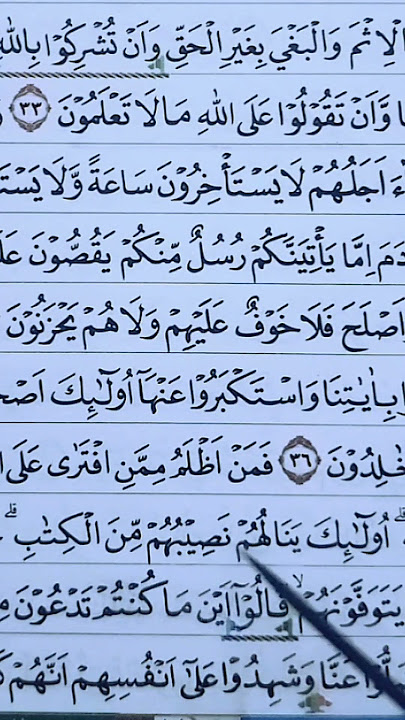 الْاِثْمَ وَالْبَغْيَ بِغَيْرِ الْحَقِّ وَاَنْ تُشْرِكُوْا بِاللّٰهِ
وَّاَنْ تَقُوْلُوْا عَلَى اللّٰهِ مَا لَا تَعْلَمُوْنَ ٣٣
اَجَلُهُمْ لَا يَسْتَأْخِرُوْنَ سَاعَةً وَّلَا
اِمَّا يَأْتِيَنَّكُمْ رُسُلٌ مِّنْكُمْ يَقُصُّوْنَ
اَصْلَحَ فَلَا خَوْفٌ عَلَيْهِمْ وَلَا هُمْ يَحْزَنُوْنَ
بِاٰيٰتِنَا وَاسْتَكْبَرُوْا عَنْهَآ اُولٰۤىِٕكَ
خٰلِدُوْنَ ٣٦ فَمَنْ اَظْلَمُ مِمَّنِ افْتَرٰى عَلَى
اُولٰۤىِٕكَ يَنَالُهُمْ نَصِيْبُهُمْ مِّنَ الْكِتٰبِۗ
يَتَوَفَّوْنَهُمْۙ قَالُوْٓا اَيْنَ مَا كُنْتُمْ تَدْعُوْنَ
ضَلُّوْا عَنَّا وَشَهِدُوْا عَلٰٓى اَنْفُسِهِمْ اَنَّهُمْ